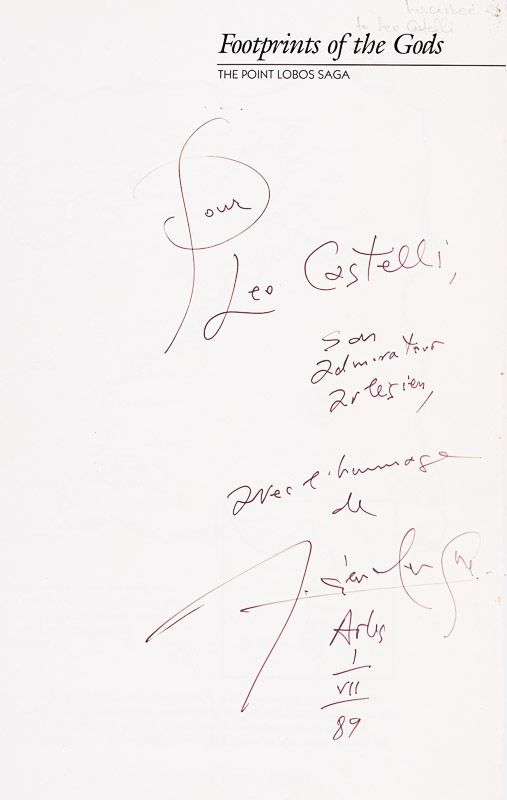 Inscribed
to Leo Castelli
Footprints of the Gods
THE POINT LOBOS SAGA
Pour
Leo Castelli,
son
admirateur
arlesien,
avec l'hommage
de
Arles
I
VII
89